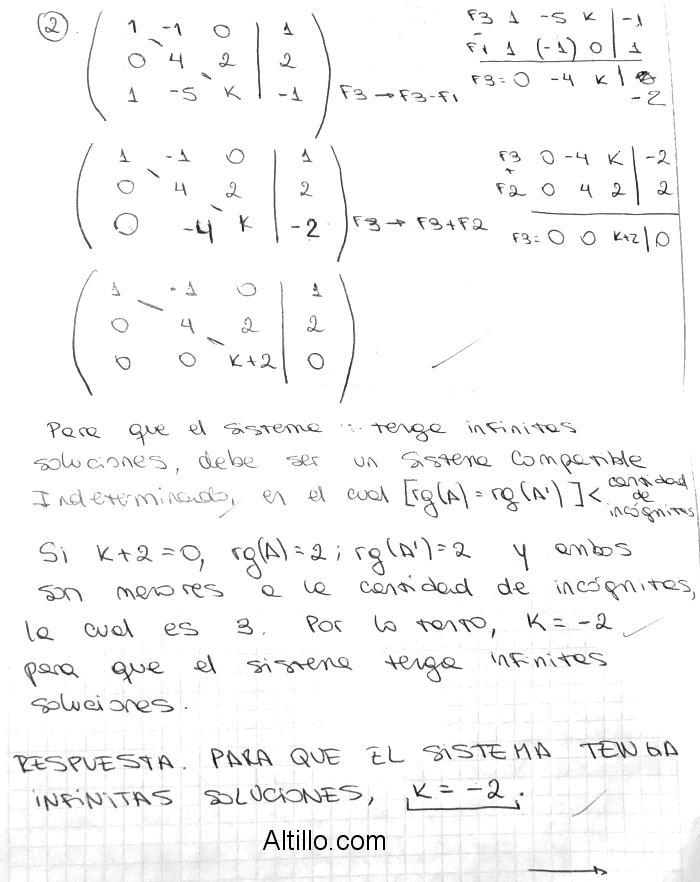 2.
1 -1 0 | 1
0 4 2 | 2
1 -5 K | -1 F3 → F3-F1
F3 1 -5 K | -1
-
F1 1 (-1) 0 | 1
F3 = 0 -4 K | -2
1 -1 0 | 1
0 4 2 | 2
0 -4 K | -2 F3 → F3+F2
F3 0 -4 K | -2
+
F2 0 4 2 | 2
F3 = 0 0 K+2 | 0
1 -1 0 | 1
0 4 2 | 2
0 0 K+2 | 0
Para que el sistema tenga infinitas
soluciones, debe ser un Sistema Compatible
Indeterminado, en el cual [rg(A) = rg(A')] < cantidad de incógnitas
Si K+2 = 0, rg(A) = 2 ; rg(A') = 2 y ambos
son menores a la cantidad de incógnitas,
la cual es 3. Por lo tanto, K = -2
para que el sistema tenga infinitas
soluciones.
RESPUESTA. PARA QUE EL SISTEMA TENGA
INFINITAS SOLUCIONES, K = -2.
Altillo.com